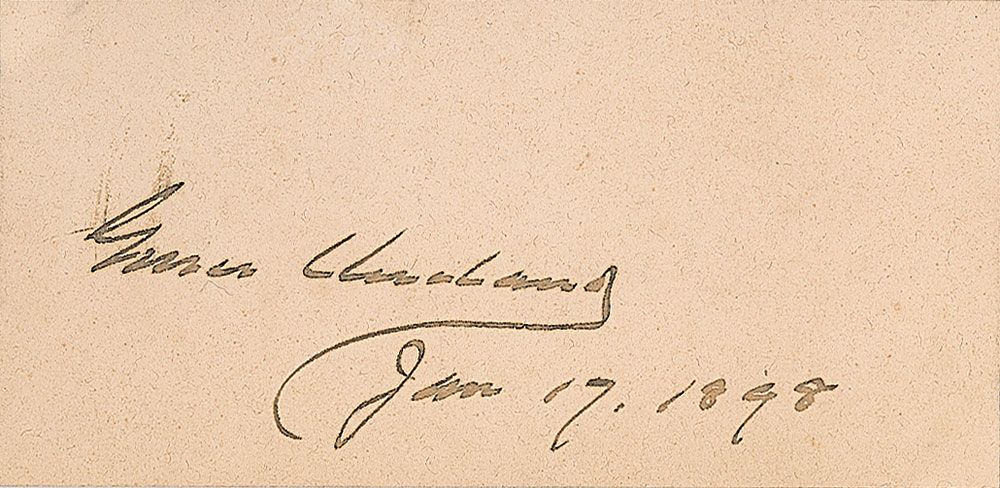 Grover Cleveland
Jan 17. 1898